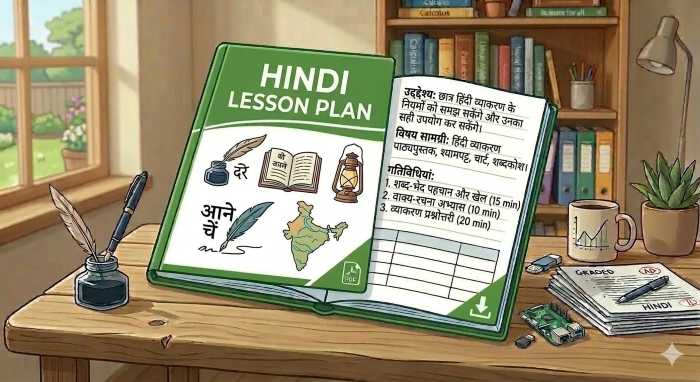 HINDI
LESSON PLAN
दरे
आने
चें
PDF
उद्देश्य: छात्र हिंदी व्याकरण के
नियमों को समझ सकेंगे और उनका
सही उपयोग कर सकेंगे।
विषय सामग्री: हिंदी व्याकरण
पाठ्यपुस्तक, श्यामपट्ट, चार्ट, शब्दकोश।
गतिविधियां:
1. शब्द-भेद पहचान और खेल (15 min)
2. वाक्य-रचना अभ्यास (10 min)
3. व्याकरण प्रश्नोत्तरी (20 min)
Calculus
GRADED
HINDI